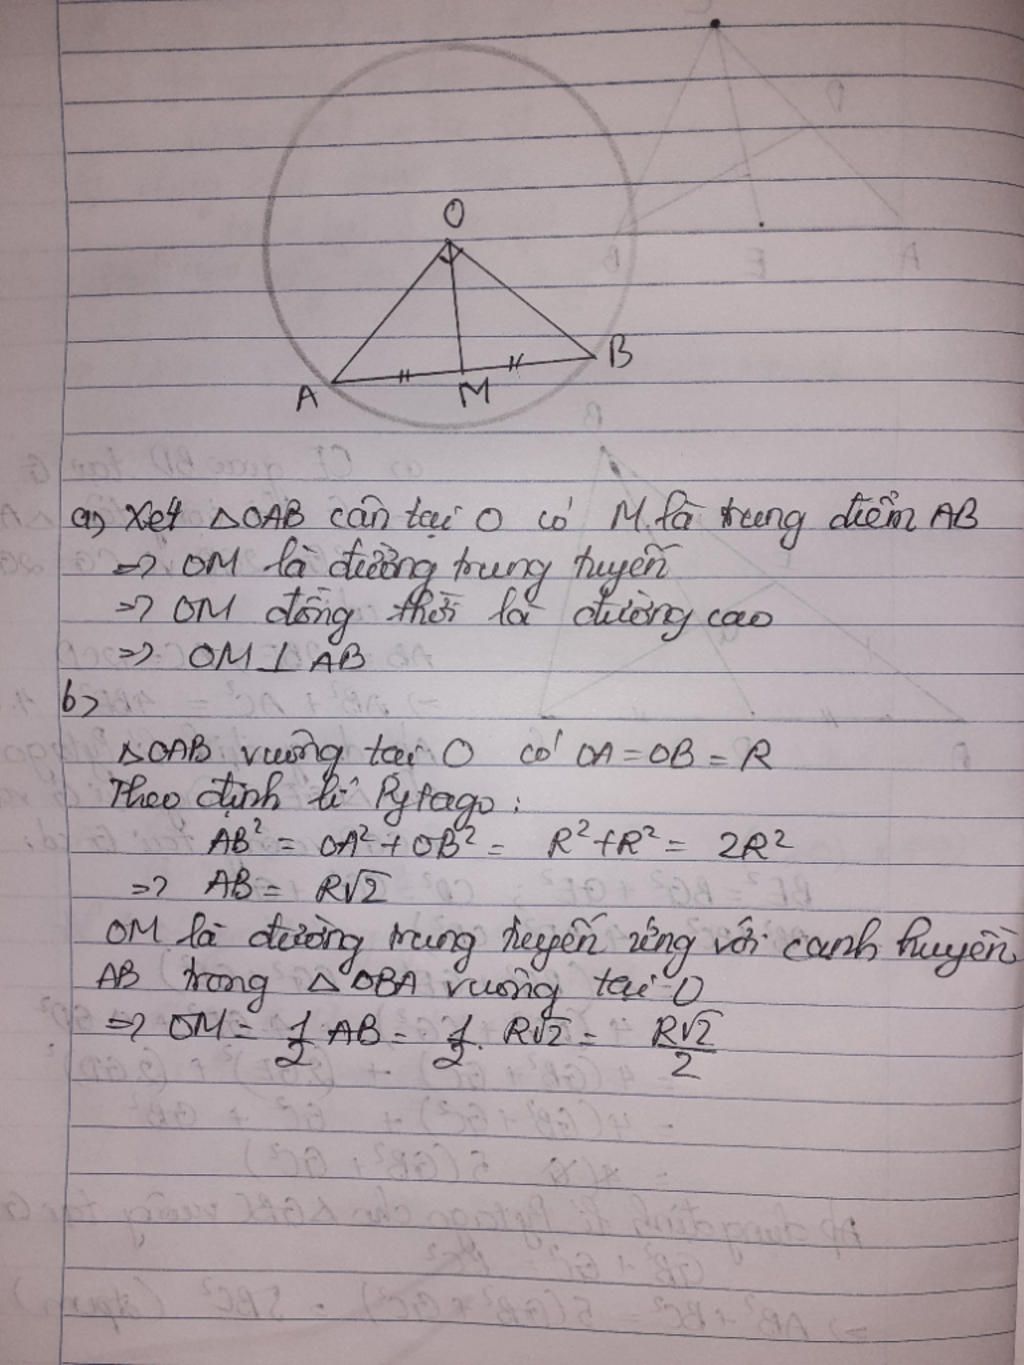 O
A
M
B
a, Xét △OAB cân tại O có M là trung điểm AB
=> OM là đường trung tuyến
=> OM đồng thời là đường cao
=> OM ⊥ AB
b>
△OAB vuông tại O có OA = OB = R
Theo định lí Pytago :
AB² = OA² + OB² = R² + R² = 2R²
=> AB = R√2
OM là đường trung tuyến ứng với cạnh huyền
AB trong △OBA vuông tại O
=> OM = 1/2 AB = 1/2 . R√2 = R√2/2